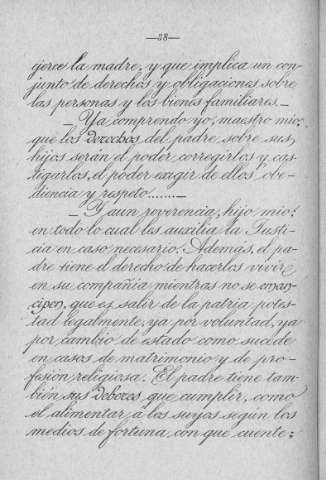 —38—
ejerce la madre, y que implica un con-
junto de derechos y obligaciones sobre
las personas y los bienes familiares.—
— Ya comprendo yo, maestro mio,
que los derechos del padre sobre sus
hijos serán el poder corregirlos y cas-
tigarlos, el poder exigir de ellos obe-
diencia y respeto........—
— Y aun reverencia, hijo mio;
en todo lo cual les auxilia la Justi-
cia en caso necesario. Además, el pa-
dre tiene el derecho de hacerlos vivir
en su compañia mientras no se eman-
cipen, que es salir de la patria potes-
tad legalmente, ya por voluntad, ya
por cambio de estado como sucede
en casos de matrimonio y de pro-
fesión religiosa. El padre tiene tam-
bién sus deberes que cumplir, como
el alimentar á los suyos según los
medios de fortuna con que cuente;